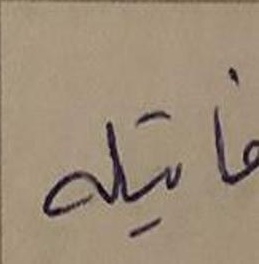 فاتيله